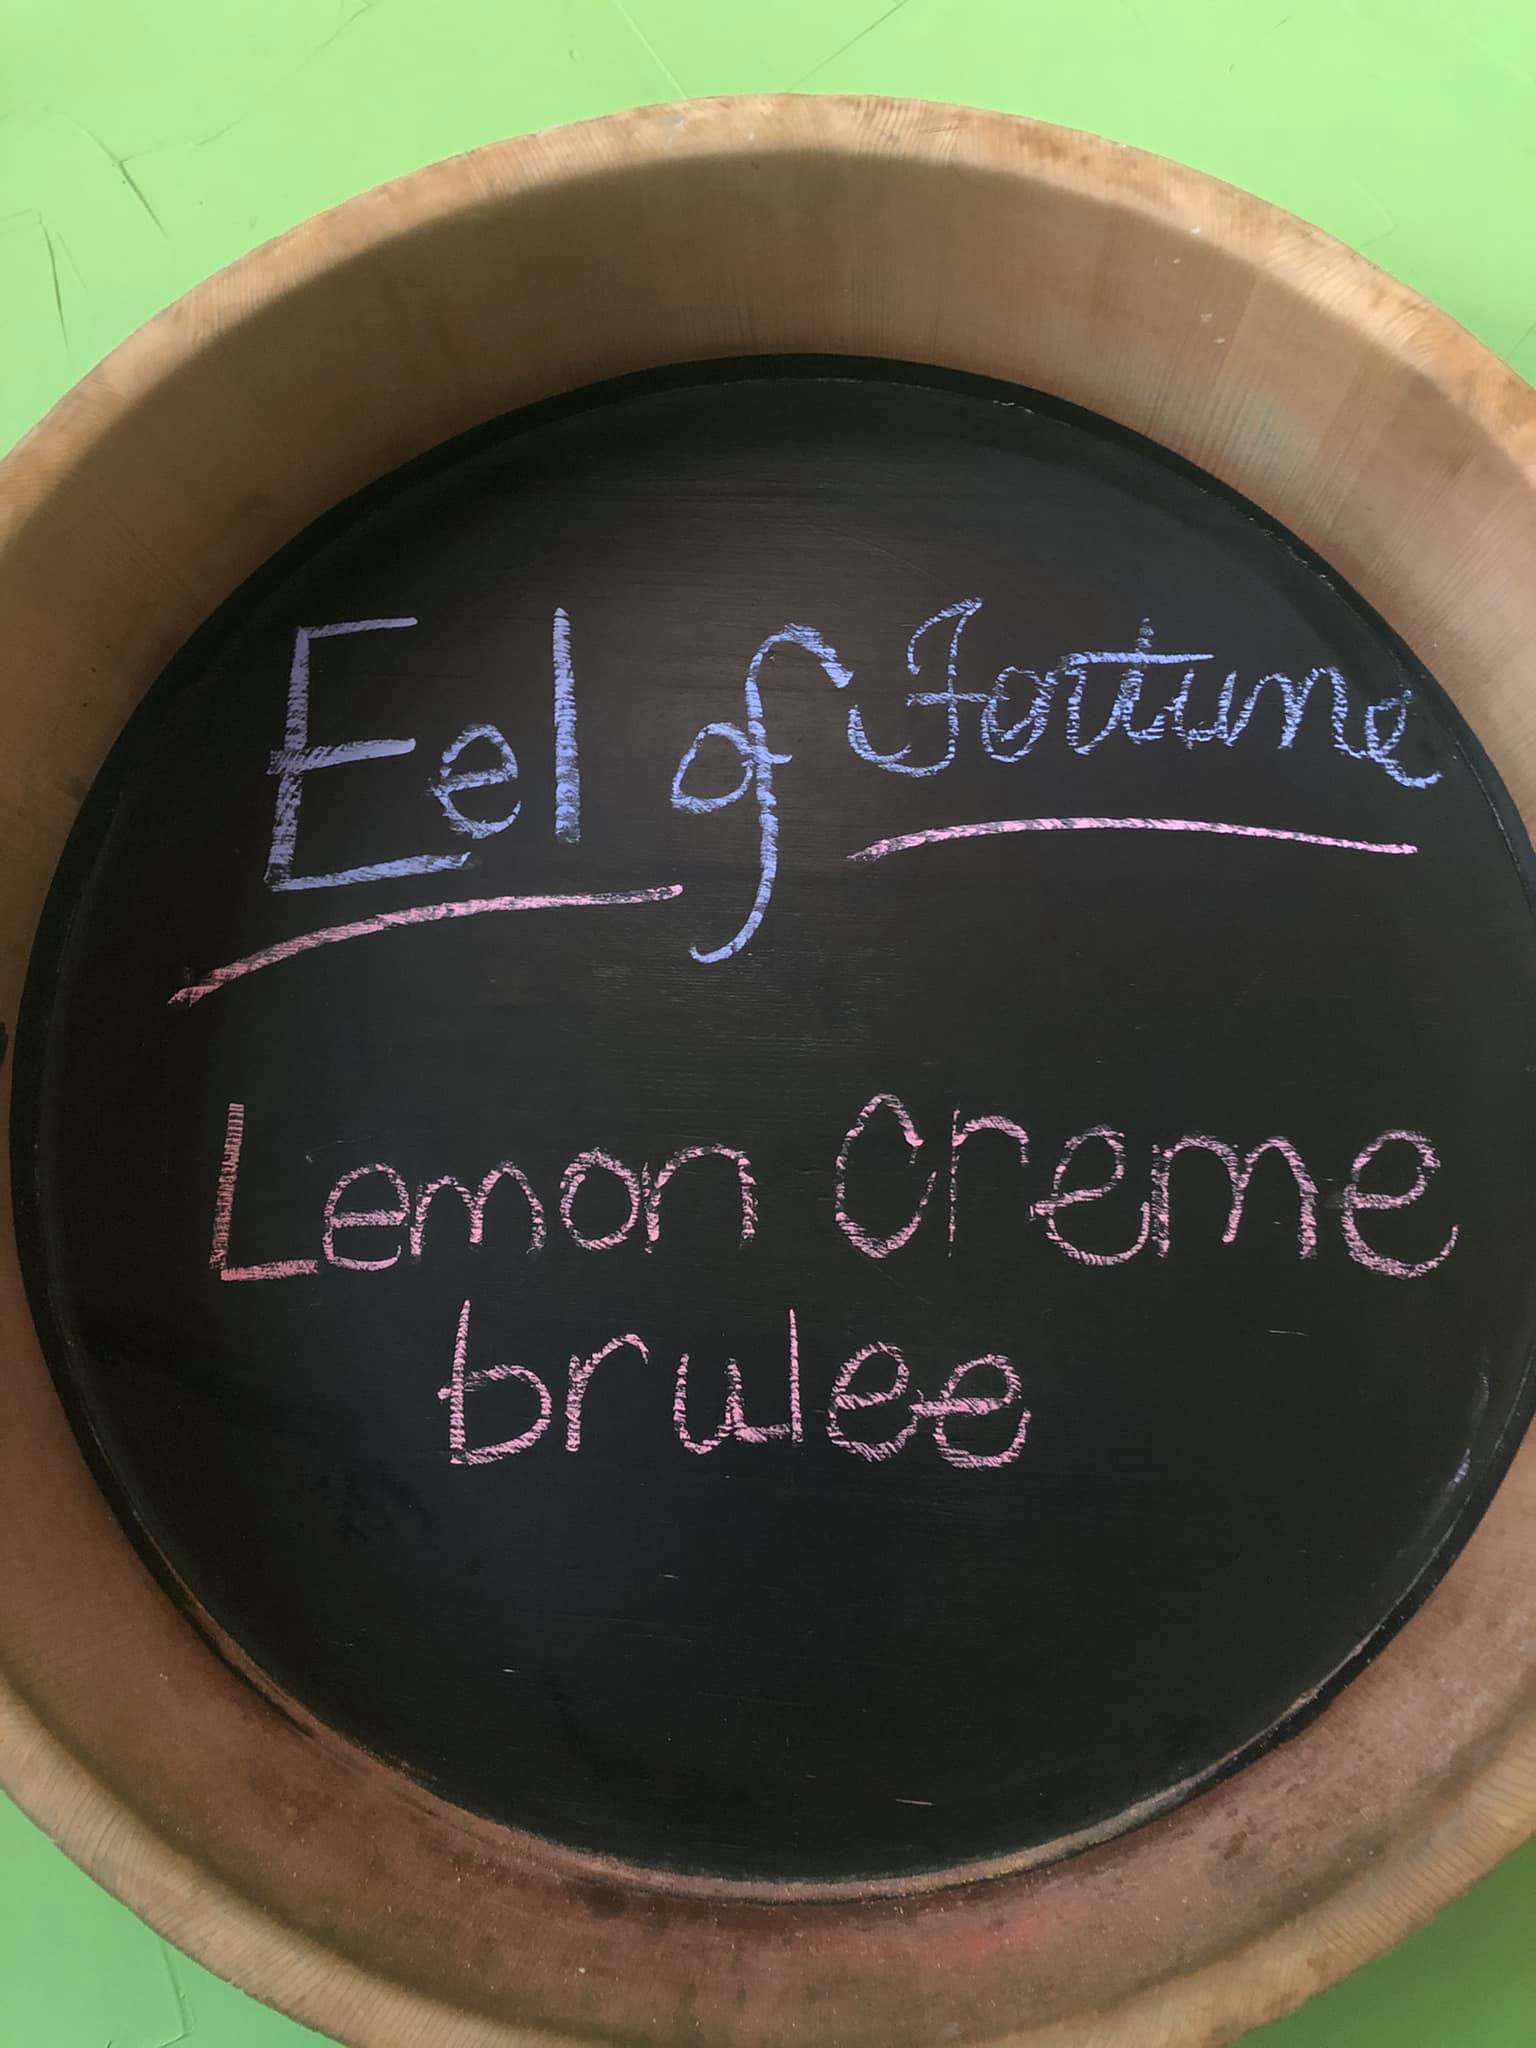 Eel of Fortune
Lemon Creme
brulee